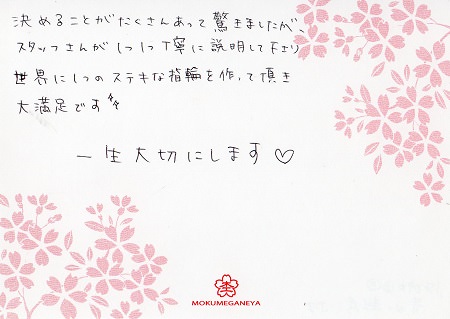 決めることがたくさんあって驚きましたが、
スタッフさんが1つ1つ丁寧に説明して下さり
世界に1つのステキな指輪を作って頂き
大満足です
一生大切にします♡
MOKUMEGANEYA